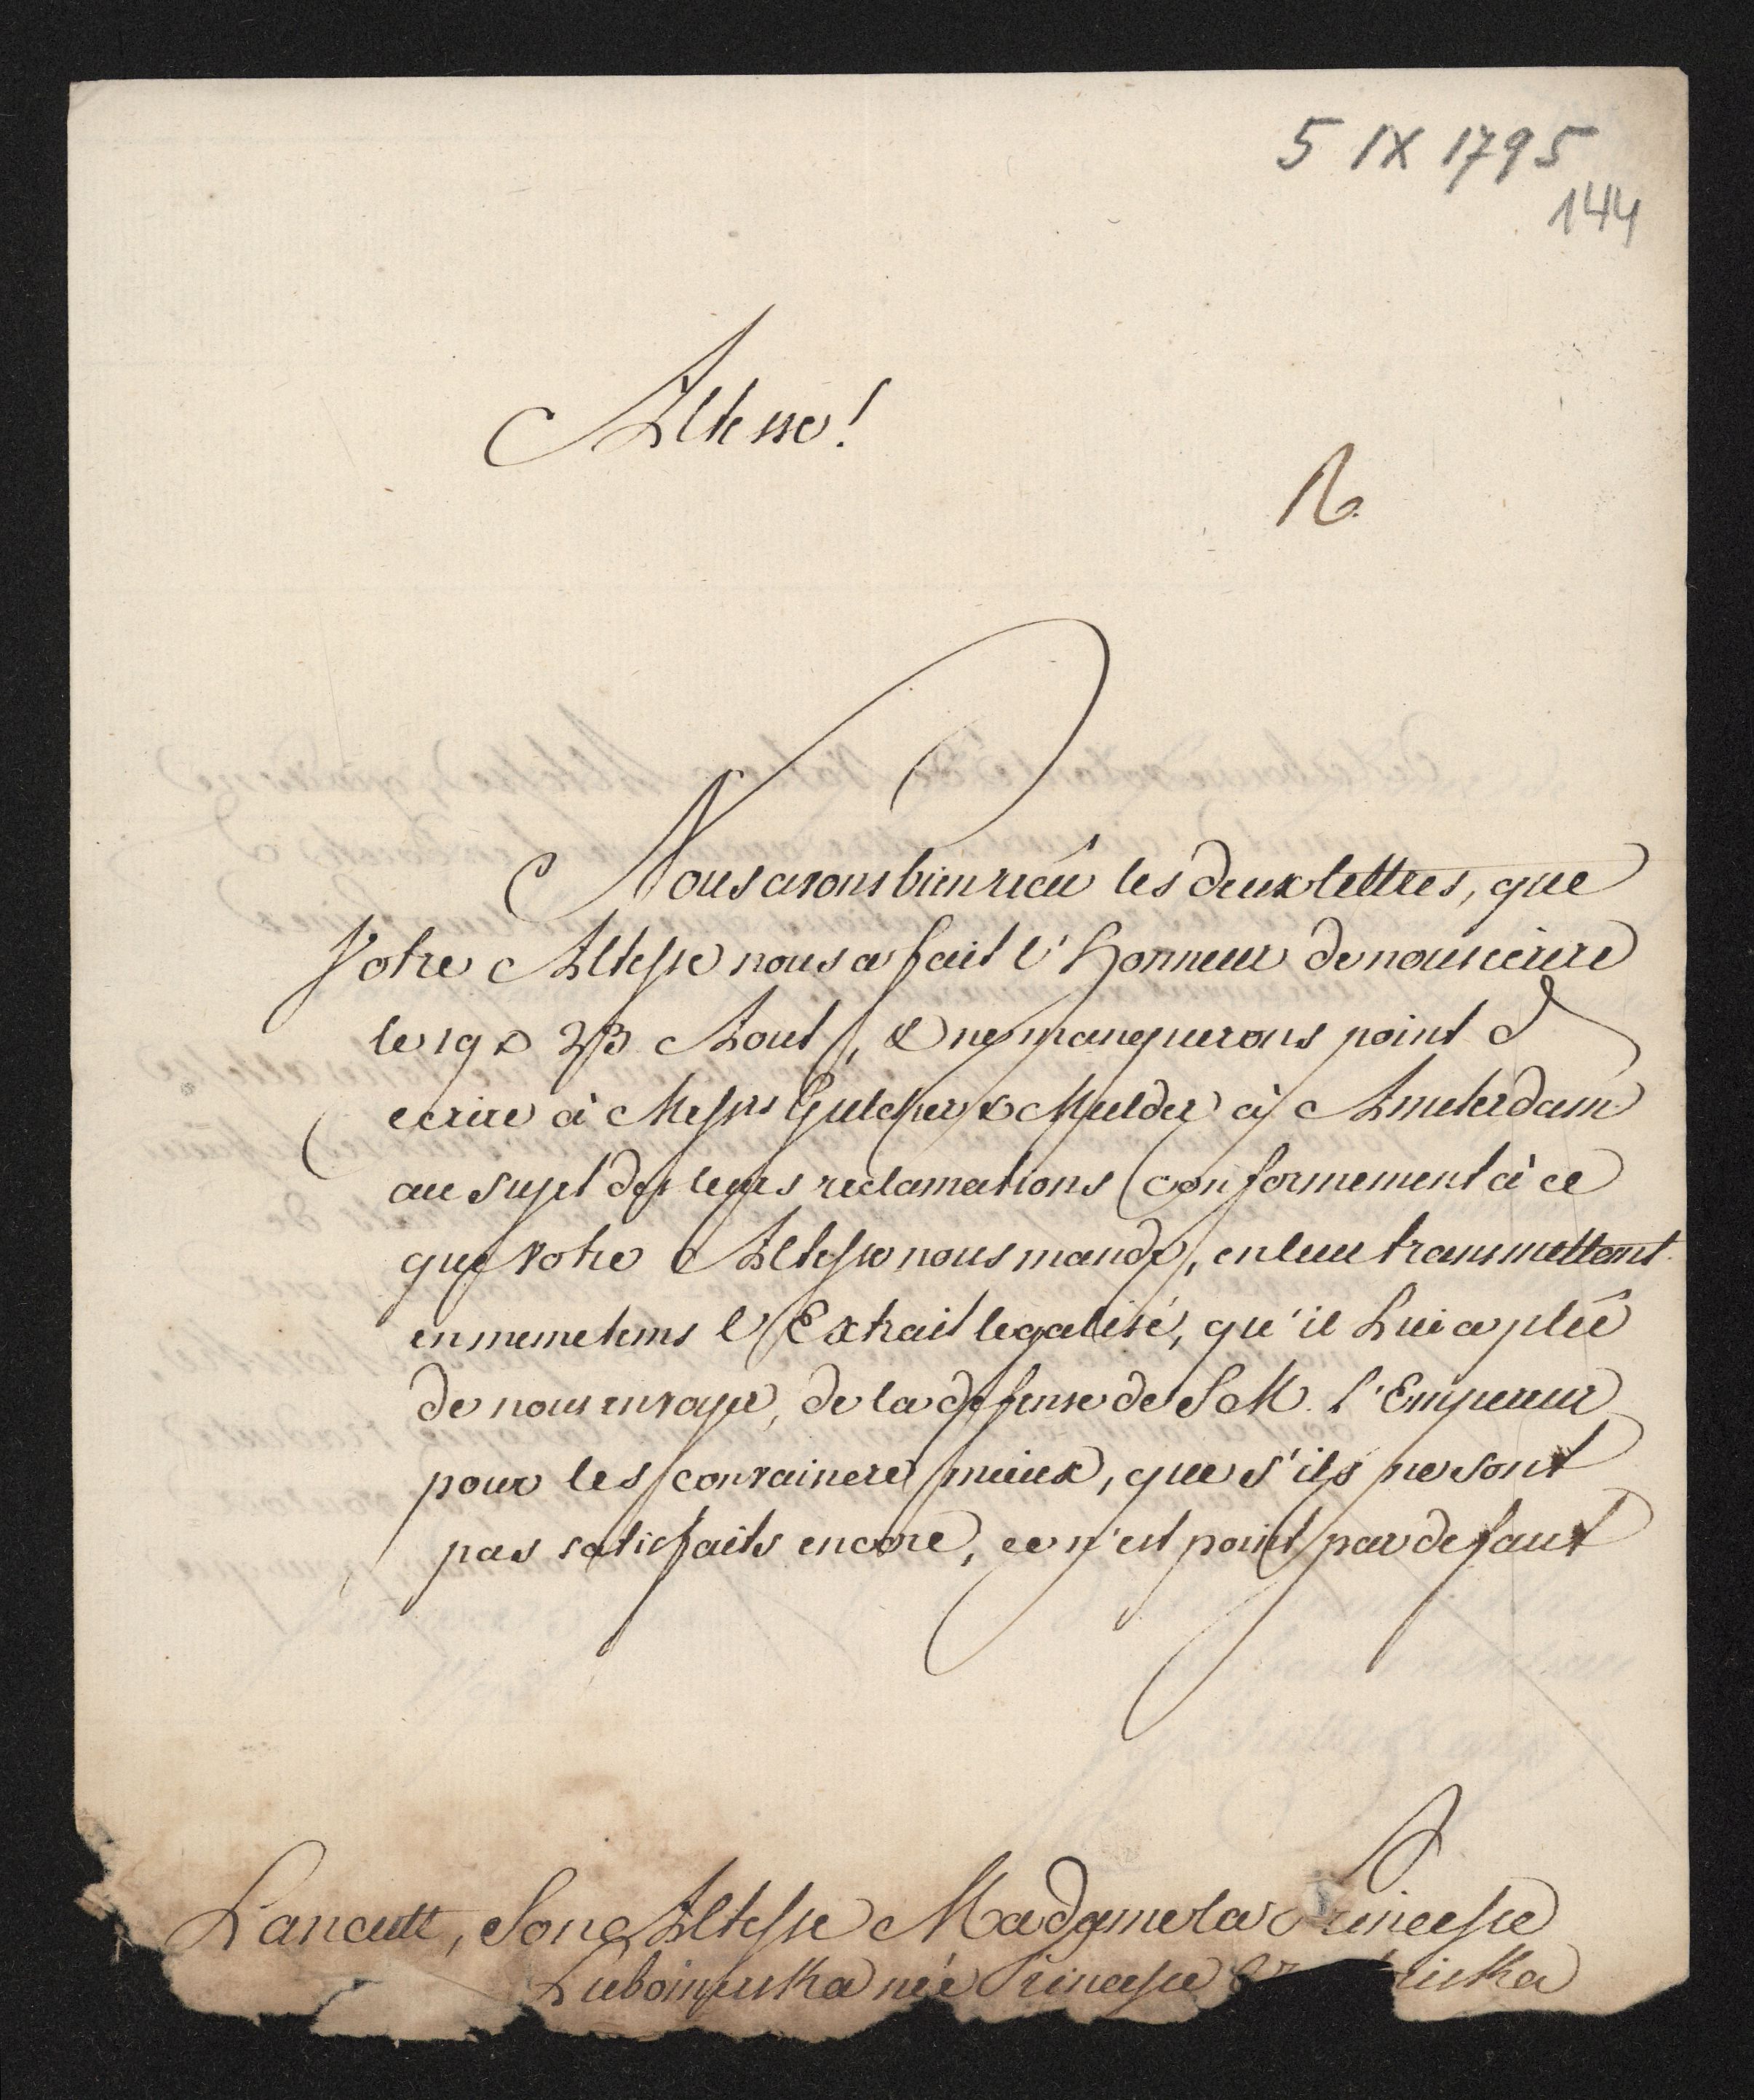 5 IX 1795
144
Altesse!
Nous avons bien reçû les deux lettres, que
Votre Altesse nous a fait l'Honneur de nous ecrire
le 19 & 23 Aout, & ne manquerons point d'
ecrire à Messrs Gulcher & Mulder à Amsterdam
au sujet de leurs reclamations conformement à ce
que Votre Altesse nous mande, en leur transmettant
en meme tems l'Extrait legalisé, qu'il Lui a plû
de nous envoyer, de la defense de S.M. l'Empereur
pour les convaincre mieux, que s'ils ne sont
pas satisfaits encore, ce n'est point par defaut
Lancutt, Son Altesse Madame la Princesse
Lubomirska née Princesse